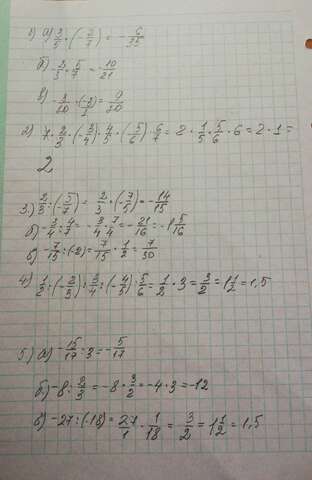 1) а) 3/5 · (-2/7) = -6/35
б) -2/3 · 5/7 = -10/21
в) -3/20 · (-3/1) = 9/20
2) 7 · 2/3 · (-3/4) · 4/5 · (-5/6) · 6/7 = 2 · 1/5 · 5/6 · 6 = 2 · 1 =
2
3.) 2/3 : (-5/7) = 2/3 · (-7/5) = -14/15
б) -3/4 : 4/7 = -3/4 · 7/4 = -21/16 = -1 5/16
в) -7/15 : (-2) = 7/15 · 1/2 = 7/30
4) 1/2 : (-2/3) : 3/4 : (-4/5) : 5/6 = 1/2 · 3 = 3/2 = 1 1/2 = 1,5
5.) а) -15/17 : 3 = -5/17
б) -8 : 2/3 = -8 · 3/2 = -4 · 3 = -12
в) -27 : (-18) = 27/1 · 1/18 = 3/2 = 1 1/2 = 1,5